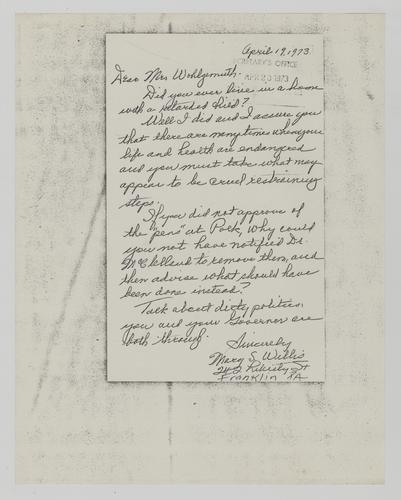 April 19, 1973
SECRETARY'S OFFICE
APR 23 1973
Dear Mrs Wohlgemuth-
Did you ever live in a home
with a retarded child?
Well I did and I assure you
that there are many times when your
life and health are endangered
and you must take what may
appear to be cruel restraining
steps.
If you did not approve of
the "pens" at Polk, why could
you not have notified Dr.
McClelland to remove them, and
then advise what should have
been done instead?
Talk about dirty politics,
you and your Governor are
both "through".
Sincerely
Mary S. Willis
242 Liberty St
Franklin PA